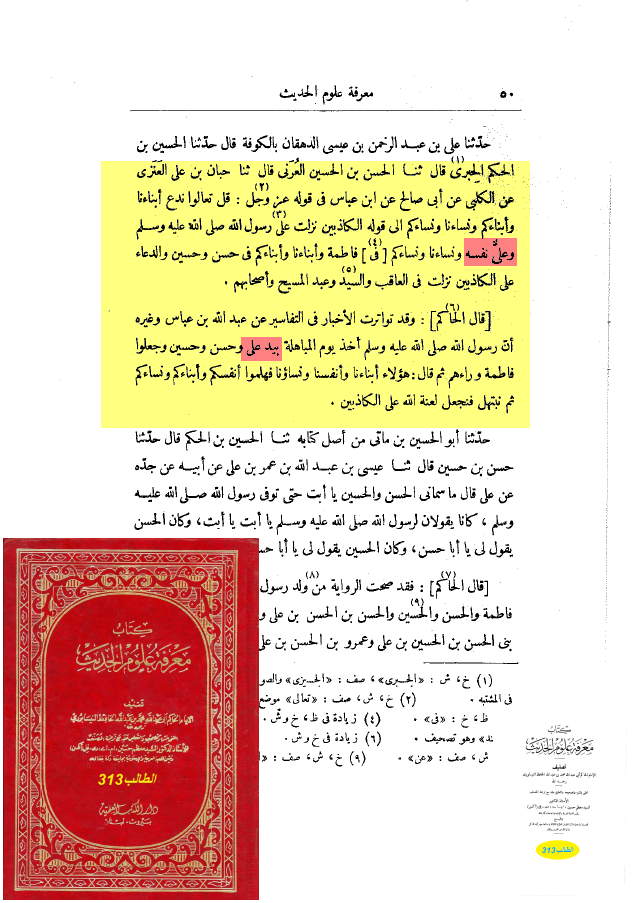 ٥٠
معرفة علوم الحديث
حدّثنا على بن عبد الرحمن بن عيسى الدهقان بالكوفة قال حدّثنا الحسين بن
الحكم الحِبرى(١) قال ثنا الحسن بن الحسين العُرَنى قال ثنا حبان بن على العَنَزى
عن الكلبى عن أبى صالح عن ابن عباس فى قوله عز وجل(٢) : قل تعالوا ندع أبناءنا
وأبناءكم ونساءنا ونساءكم الى قوله الكاذبين نزلت على(٣) رسول الله صلى الله عليه وسلم
وعلىٌّ نفسه ونساءنا ونساءكم [فى](٤) فاطمة وأبناءنا وأبناءكم فى حسن وحسين والدعاء
على الكاذبين نزلت فى العاقب والسيّد(٥) وعبد المسيح وأصحابهم .
[قال الحاكم](٦) : وقد تواترت الأخبار فى التفاسير عن عبد الله بن عباس وغيره
أن رسول الله صلى الله عليه وسلم أخذ يوم المباهلة بيد على وحسن وحسين وجعلوا
فاطمة وراءهم ثم قال : هؤلاء أبناءنا وأنفسنا ونساؤنا فهلموا أنفسكم وأبناءكم ونساءكم
ثم نبتهل فنجعل لعنة الله على الكاذبين .
حدّثنا أبو الحسين بن ماتى من أصل كتابه ثنا الحسين بن الحكم قال حدّثنا
حسن بن حسين قال ثنا عيسى بن عبد الله بن عمر بن على عن أبيه عن جدّه
عن على قال ما سمانى الحسن والحسين يا أبت حتى توفى رسول الله صلى الله عليه
وسلم ، كانا يقولان لرسول الله صلى الله عليه وسلم يا أبت يا أبت، وكان الحسن
يقول لى يا أبا حسن، وكان الحسين يقول لى يا أبا
[قال الحاكم](٧) : فقد صحت الرواية من(٨) ولد رسول
فاطمة والحسن والحسين(٩) والحسن بن الحسن بن على
بنى الحسن بن الحسين بن على وعمرو بن الحسن بن
(١) خ، ش : «الجبرى»، صف : «الحيزى»
فى المشتبه . (٢) خ، ش، صف : «تعالى»
ظ، خ : «فى» . (٤) زيادة فى ظ، خ وش .
ند» وهو تصحيف . (٦) زيادة فى خ وش .
ش، صف : «عن» . (٩) خ، ش، صف :
كتاب
معرفة علوم الحديث
تصنيف
الطالب 313
دار الكتب العلمية
بيروت - لبنان
كتاب
معرفة علوم الحديث
تصنيف
الطالب 313